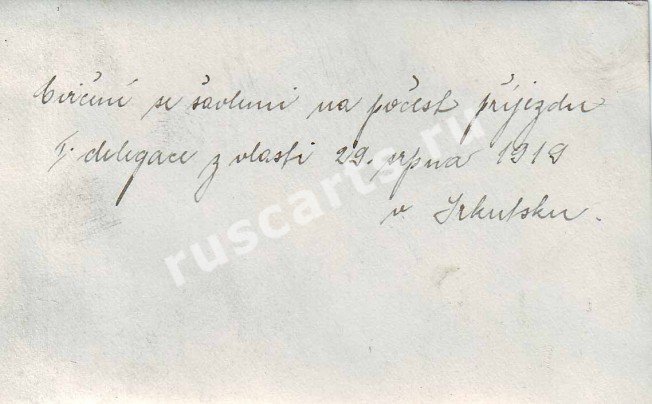 Cvičení se šavlemi na počest příjezdu
I. delegace z vlasti 29. srpna 1919
v Irkutsku.
ruscarts.ru